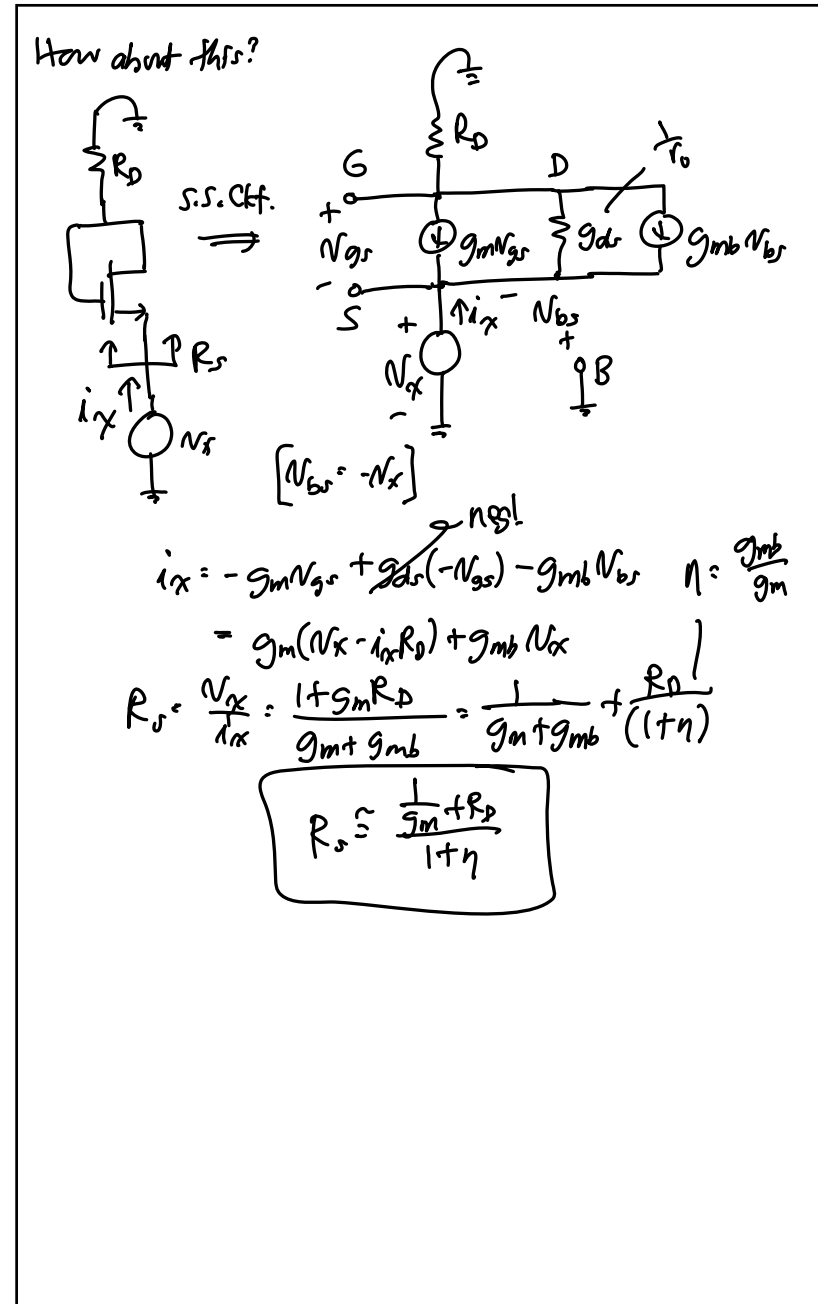 How about this?
R_D
s.s. Ckt.
⟹
R_s
i_x
v_x
R_D
G
D
1/r_o
+
v_gs
-
g_m v_gs
g_ds
g_mb v_bs
S
+
i_x
-
v_bs
+
B
v_x
-
[v_bs = -v_x]
neg!
i_x = -g_m v_gs + g_ds(-v_gs) - g_mb v_bs   η = g_mb/g_m
= g_m(v_x - i_x R_D) + g_mb v_x
R_s = v_x/i_x = (1+g_m R_D)/(g_m + g_mb) = 1/(g_m + g_mb) + R_D/(1+η)
R_s ≅ (1/g_m + R_D)/(1+η)